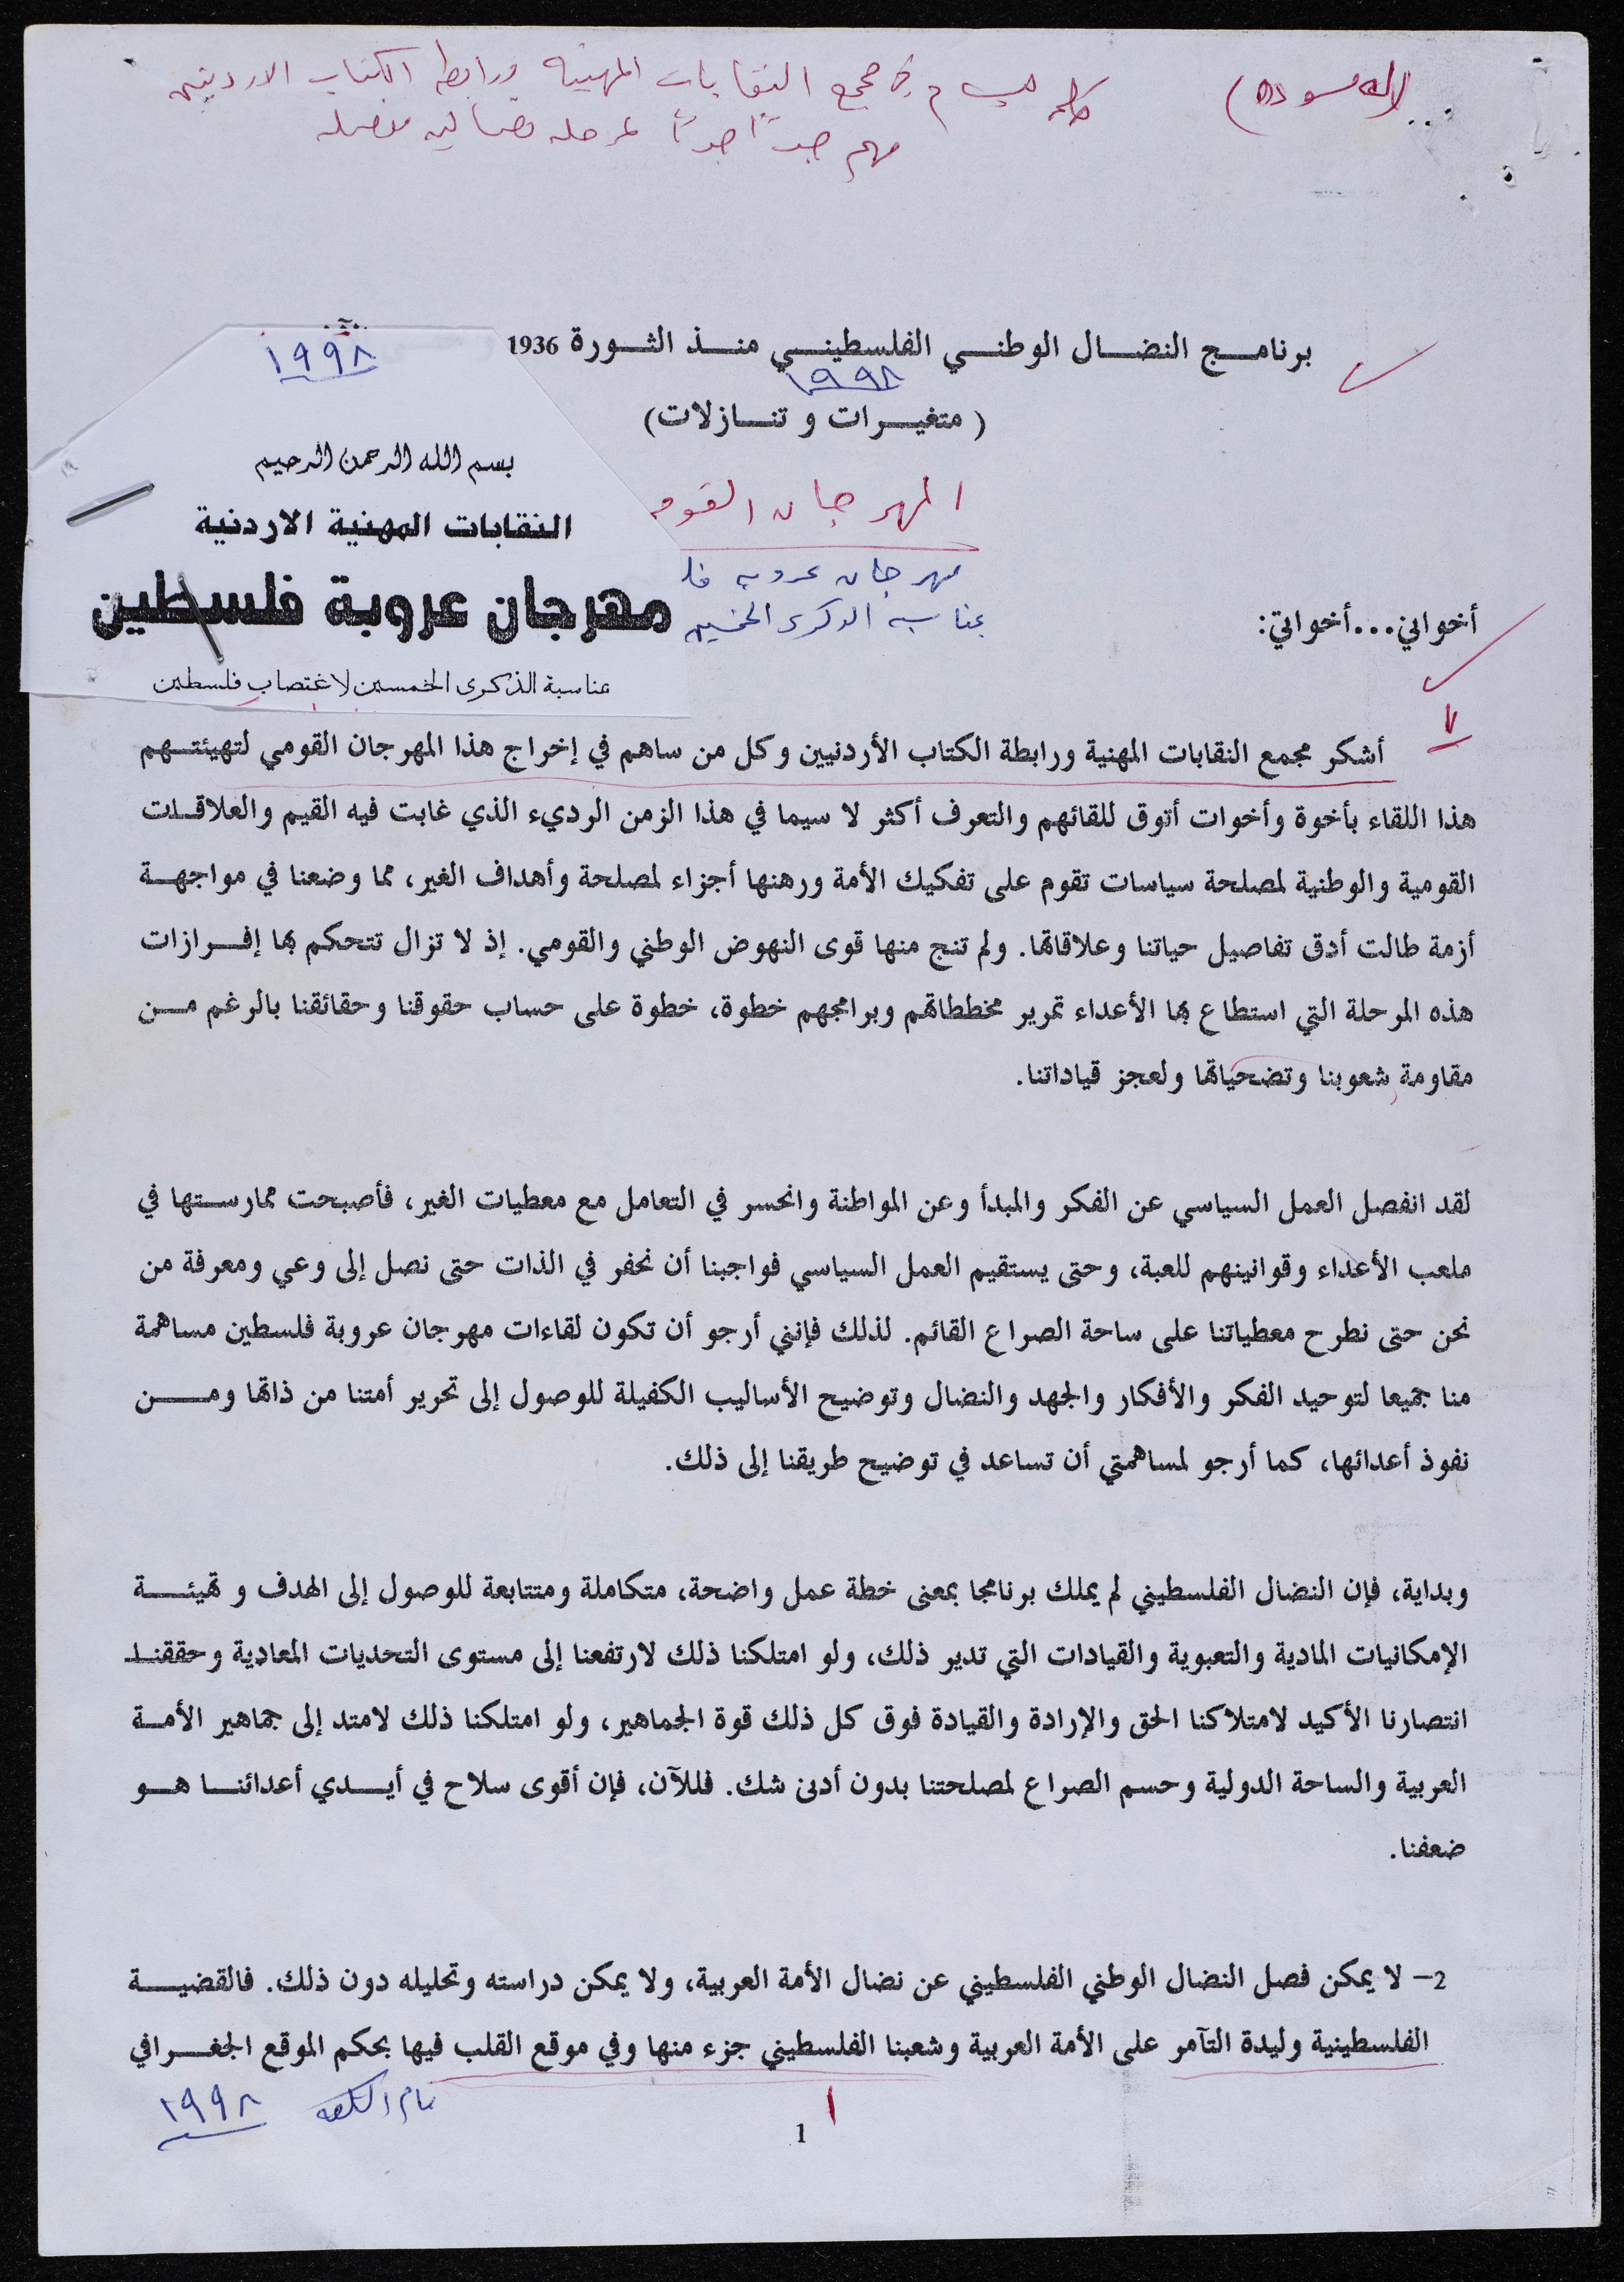 (المسودة)
في مجمع النقابات المهنية ورابطة الكتاب الاردنيين
مهم جداً جداً لمرحلة نضالية مفصلة
برنامج النضال الوطني الفلسطيني منذ الثورة 1936
١٩٩٨
(متغيرات و تنازلات)
المهرجان القومي
مهرجان عروبة فلـ
بمناسبة الذكرى الخمسين
١٩٩٨
بسم الله الرحمن الرحيم
النقابات المهنية الاردنية
مهرجان عروبة فلسطين
بمناسبة الذكرى الخمسين لاغتصاب فلسطين
أخواني...أخواتي:
أشكر مجمع النقابات المهنية ورابطة الكتاب الأردنيين وكل من ساهم في إخراج هذا المهرجان القومي لتهيئتهم
هذا اللقاء بأخوة وأخوات أتوق للقائهم والتعرف أكثر لا سيما في هذا الزمن الرديء الذي غابت فيه القيم والعلاقات
القومية والوطنية لمصلحة سياسات تقوم على تفكيك الأمة ورهنها أجزاء لمصلحة وأهداف الغير، مما وضعنا في مواجهة
أزمة طالت أدق تفاصيل حياتنا وعلاقاتها. ولم تنج منها قوى النهوض الوطني والقومي. إذ لا تزال تتحكم بها إفرازات
هذه المرحلة التي استطاع بها الأعداء تمرير مخططاتهم وبرامجهم خطوة، خطوة على حساب حقوقنا وحقائقنا بالرغم من
مقاومة شعوبنا وتضحياتها ولعجز قياداتنا.
لقد انفصل العمل السياسي عن الفكر والمبدأ وعن المواطنة وانحسر في التعامل مع معطيات الغير، فأصبحت ممارستها في
ملعب الأعداء وقوانينهم للعبة، وحتى يستقيم العمل السياسي فواجبنا أن نحفر في الذات حتى نصل إلى وعي ومعرفة من
نحن حتى نطرح معطياتنا على ساحة الصراع القائم. لذلك فإنني أرجو أن تكون لقاءات مهرجان عروبة فلسطين مساهمة
منا جميعا لتوحيد الفكر والأفكار والجهد والنضال وتوضيح الأساليب الكفيلة للوصول إلى تحرير أمتنا من ذاتها ومن
نفوذ أعدائها، كما أرجو لمساهمتي أن تساعد في توضيح طريقنا إلى ذلك.
وبداية، فإن النضال الفلسطيني لم يملك برنامجا بمعنى خطة عمل واضحة، متكاملة ومتتابعة للوصول إلى الهدف و تهيئة
الإمكانيات المادية والتعبوية والقيادات التي تدير ذلك، ولو امتلكنا ذلك لارتفعنا إلى مستوى التحديات المعادية وحققنا
انتصارنا الأكيد لامتلاكنا الحق والإرادة والقيادة فوق كل ذلك قوة الجماهير، ولو امتلكنا ذلك لامتد إلى جماهير الأمة
العربية والساحة الدولية وحسم الصراع لمصلحتنا بدون أدنى شك. فللآن، فإن أقوى سلاح في أيدي أعدائنا هو
ضعفنا.
2- لا يمكن فصل النضال الوطني الفلسطيني عن نضال الأمة العربية، ولا يمكن دراسته وتحليله دون ذلك. فالقضية
الفلسطينية وليدة التآمر على الأمة العربية وشعبنا الفلسطيني جزء منها وفي موقع القلب فيها بحكم الموقع الجغرافي
١٩٩٨
١
1